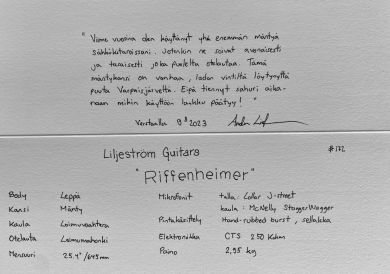 "Viime vuosina oon käyttänyt yhä enemmän mäntyä
sähkökitaroissani. Jotenkin ne soivat avonaisesti
ja tasaisesti joka puolelta otelautaa. Tämä
mäntykansi on vanhaa, ladon vintiltä löytynyttä
puuta Varpaisjärveltä. Eipä tiennyt sahuri aika-
naan mihin käyttöön lankku päätyy! "
Verstaalla 9.8 2023
Liljeström Guitars #132
"Riffenheimer"
Body Leppä
Kansi Mänty
Kaula Loimuvaahtera
Otelauta Loimumahonki
Mensuuri 25.4" /645mm
Mikrofonit talla: Lollar J-street
kaula : McNelly StaggerSwagger
Pintakäsittely Hand-rubbed burst, sellakka
Elektroniikka CTS 250 Kohm
Paino 2,95 kg